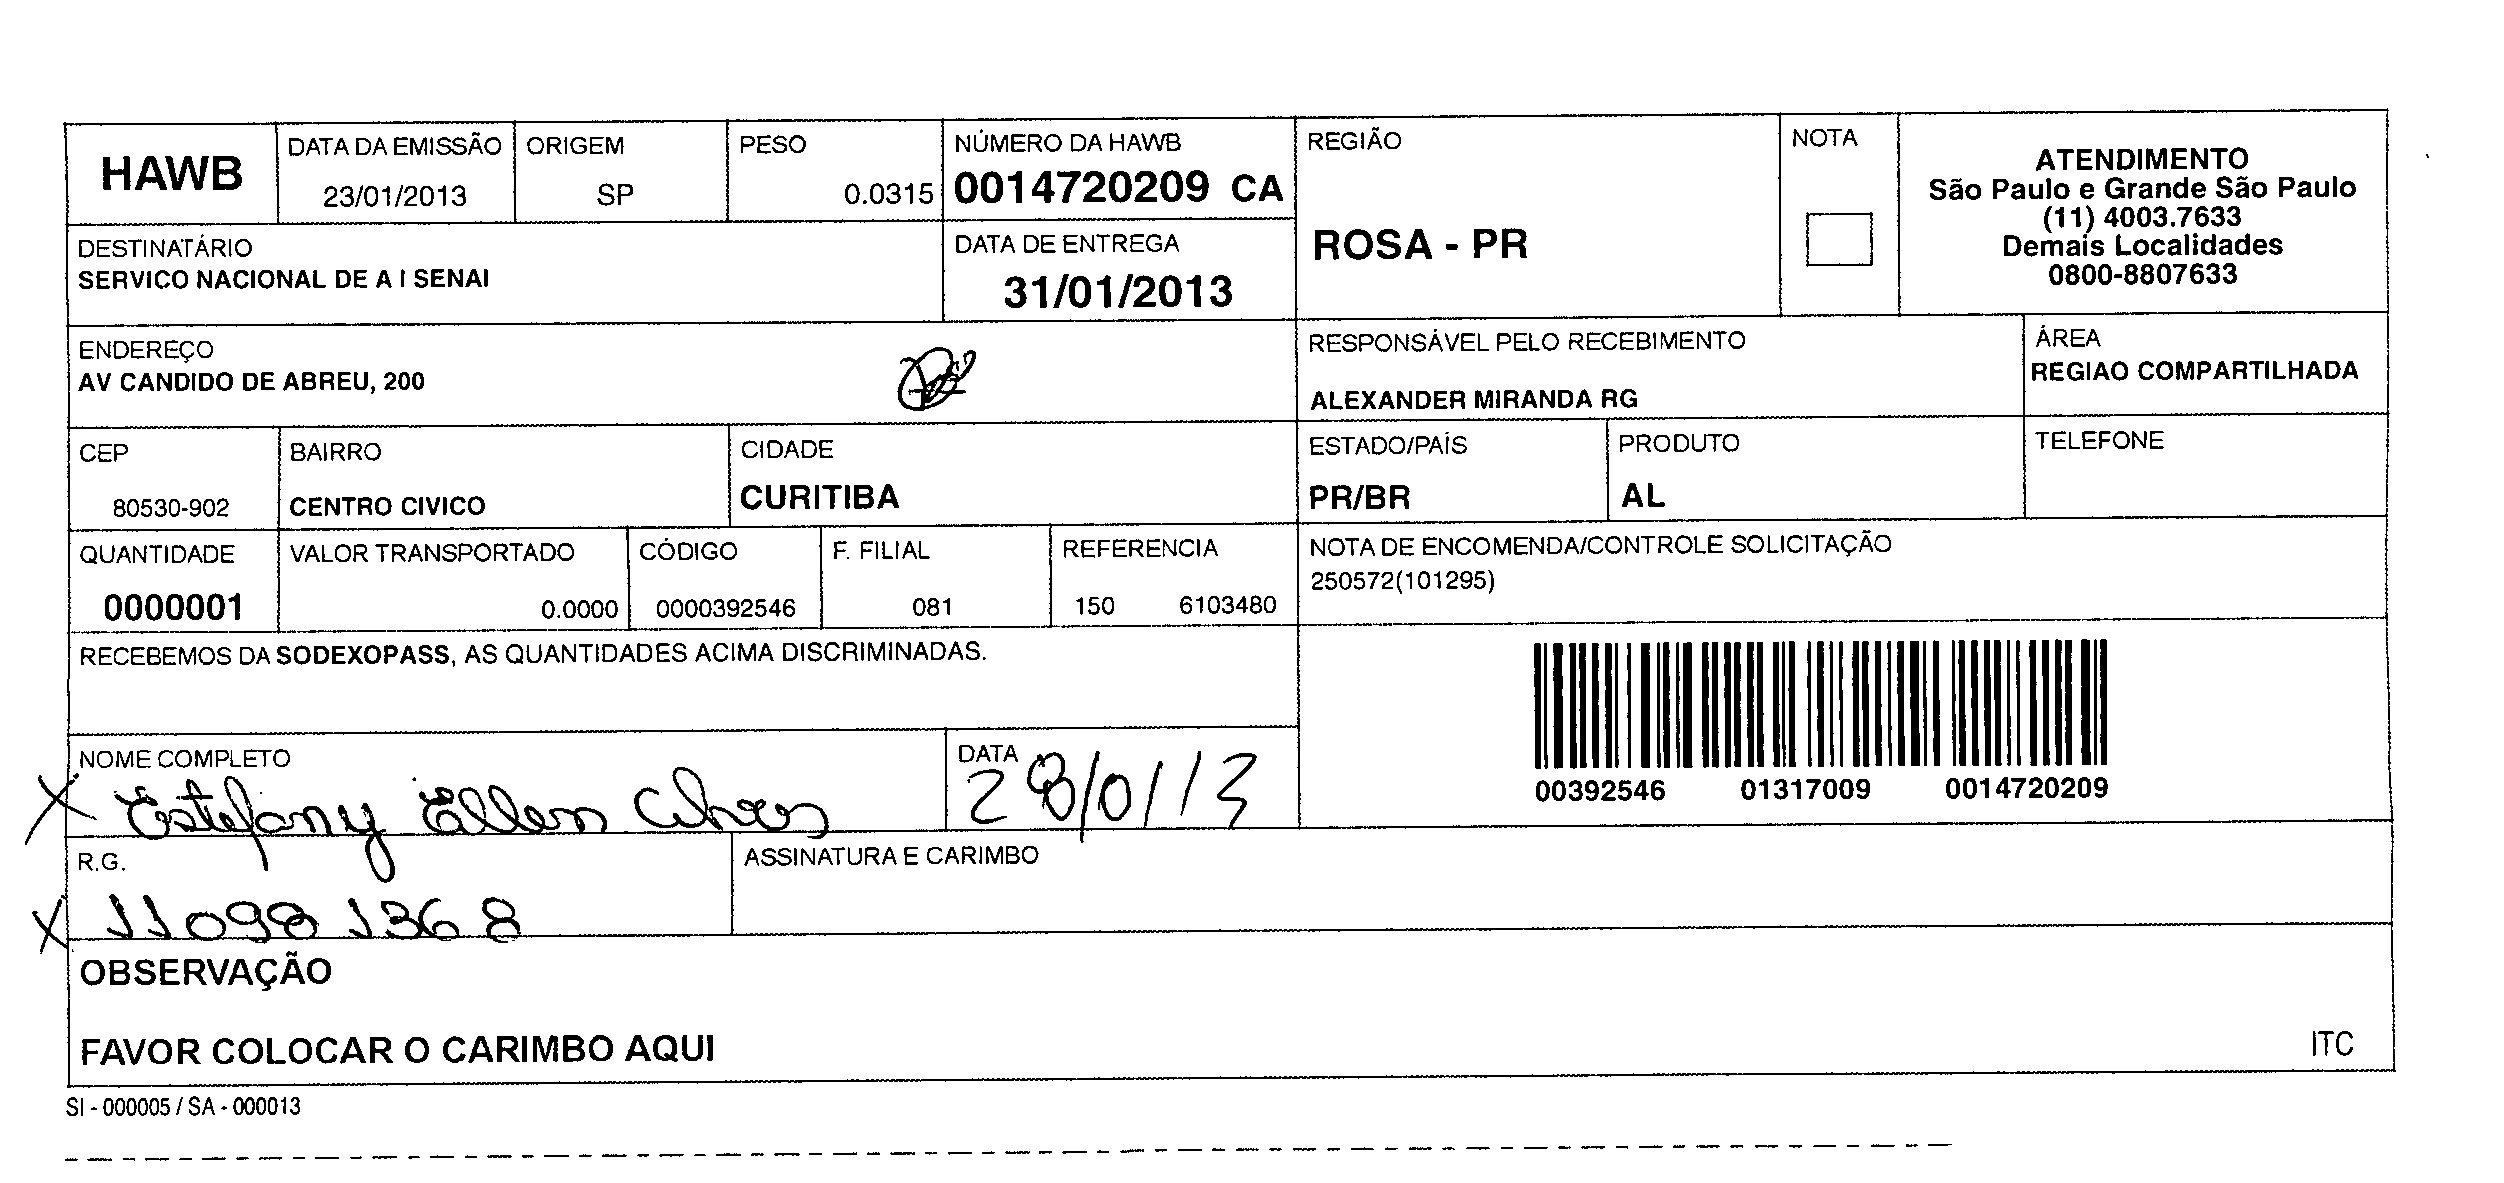 HAWB
DATA DA EMISSÃO
23/01/2013
ORIGEM
SP
PESO
0.0315
NÚMERO DA HAWB
0014720209 CA
REGIÃO
ROSA - PR
NOTA
ATENDIMENTO
São Paulo e Grande São Paulo
(11) 4003.7633
Demais Localidades
0800-8807633
DESTINATÁRIO
SERVICO NACIONAL DE A I SENAI
DATA DE ENTREGA
31/01/2013
ENDEREÇO
AV CANDIDO DE ABREU, 200
RESPONSÁVEL PELO RECEBIMENTO
ALEXANDER MIRANDA RG
ÁREA
REGIAO COMPARTILHADA
CEP
80530-902
BAIRRO
CENTRO CIVICO
CIDADE
CURITIBA
ESTADO/PAÍS
PR/BR
PRODUTO
AL
TELEFONE
QUANTIDADE
0000001
VALOR TRANSPORTADO
0.0000
CÓDIGO
0000392546
F. FILIAL
081
REFERENCIA
150 6103480
NOTA DE ENCOMENDA/CONTROLE SOLICITAÇÃO
250572(101295)
RECEBEMOS DA SODEXOPASS, AS QUANTIDADES ACIMA DISCRIMINADAS.
00392546 01317009 0014720209
NOME COMPLETO
X Estefany Ellen Alves
DATA
28/01/13
R.G.
X 11098 1368
ASSINATURA E CARIMBO
OBSERVAÇÃO
FAVOR COLOCAR O CARIMBO AQUI
ITC
SI - 000005 / SA - 000013